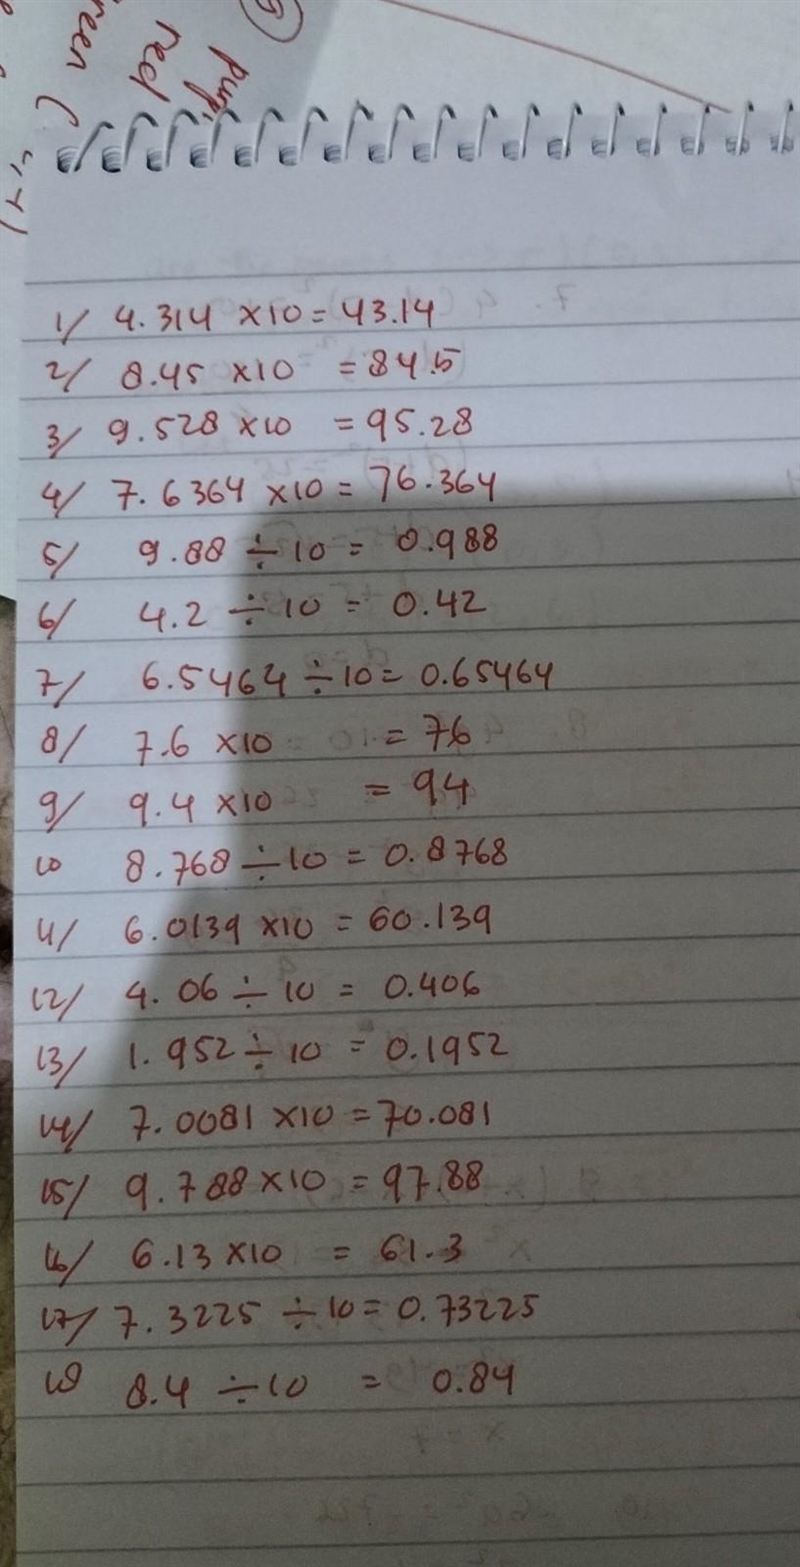 5
purp
red
reen (
4,4)
1/ 4.314 ×10 = 43.14
2/ 8.45 ×10 = 84.5
3/ 9.528 ×10 = 95.28
4/ 7.6364 ×10 = 76.364
5/ 9.88 ÷ 10 = 0.988
6/ 4.2 ÷ 10 = 0.42
7/ 6.5464 ÷ 10 = 0.65464
8/ 7.6 ×10 = 76
9/ 9.4 ×10 = 94
10 8.768 ÷ 10 = 0.8768
11/ 6.0139 ×10 = 60.139
12/ 4.06 ÷ 10 = 0.406
13/ 1.952 ÷ 10 = 0.1952
14/ 7.0081 ×10 = 70.081
15/ 9.788 ×10 = 97.88
16/ 6.13 ×10 = 61.3
17/ 7.3225 ÷ 10 = 0.73225
18 8.4 ÷ 10 = 0.84